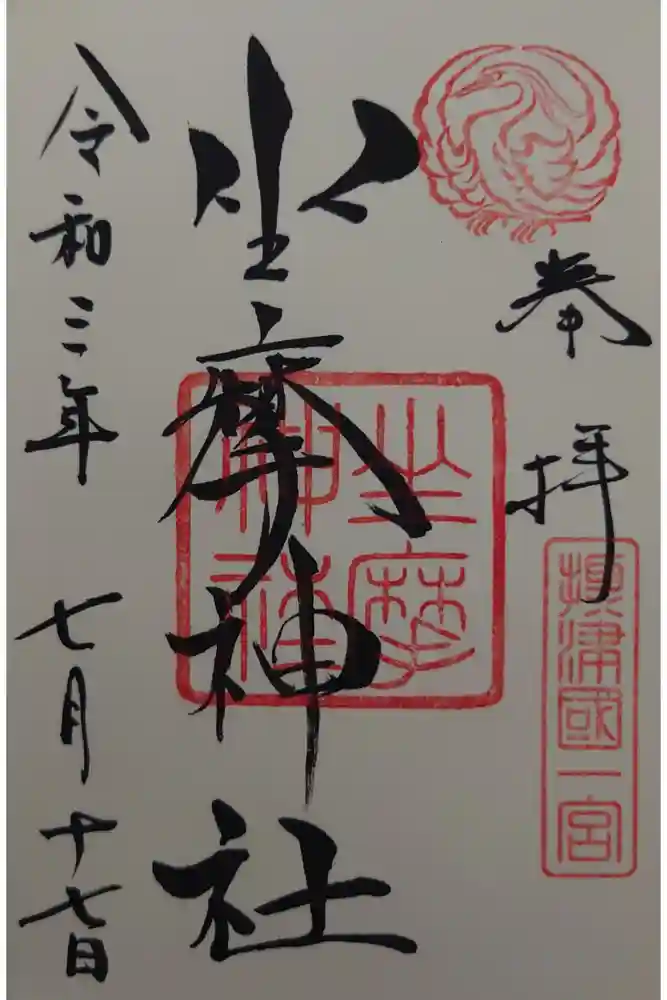 奉拝
摂津國一宮
坐摩神社
坐摩神社
令和三年 七月十七日